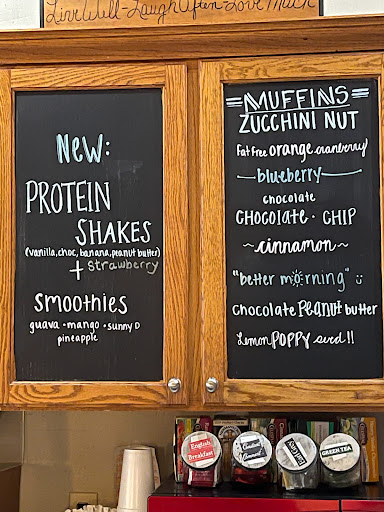 Live Well - Laugh Often - Love Much
New:
PROTEIN
SHAKES
(vanilla, choc, banana, peanut butter)
+ Strawberry
Smoothies
guava • mango • sunny D
pineapple
MUFFINS
ZUCCHINI NUT
Fat Free orange cranberry
blueberry
chocolate
CHOCOLATE • CHIP
~cinnamon~
"better morning" :)
Chocolate PEANUT butter
Lemon POPPY seed!!
English
Breakfast
Constant
Comment
Earl Grey
GREEN TEA